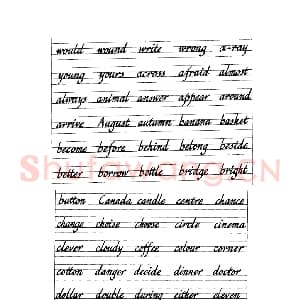 would wound write wrong x-ray
young yours across afraid almost
always animal answer appear around
arrive August autumn banana basket
become before behind belong beside
Shufawang.cn
better borrow bottle bridge bright
button Canada candle centre chance
change choise choose circle cinema
clever cloudy coffee colour corner
cotton danger decide dinner doctor
dollar double during either eleven